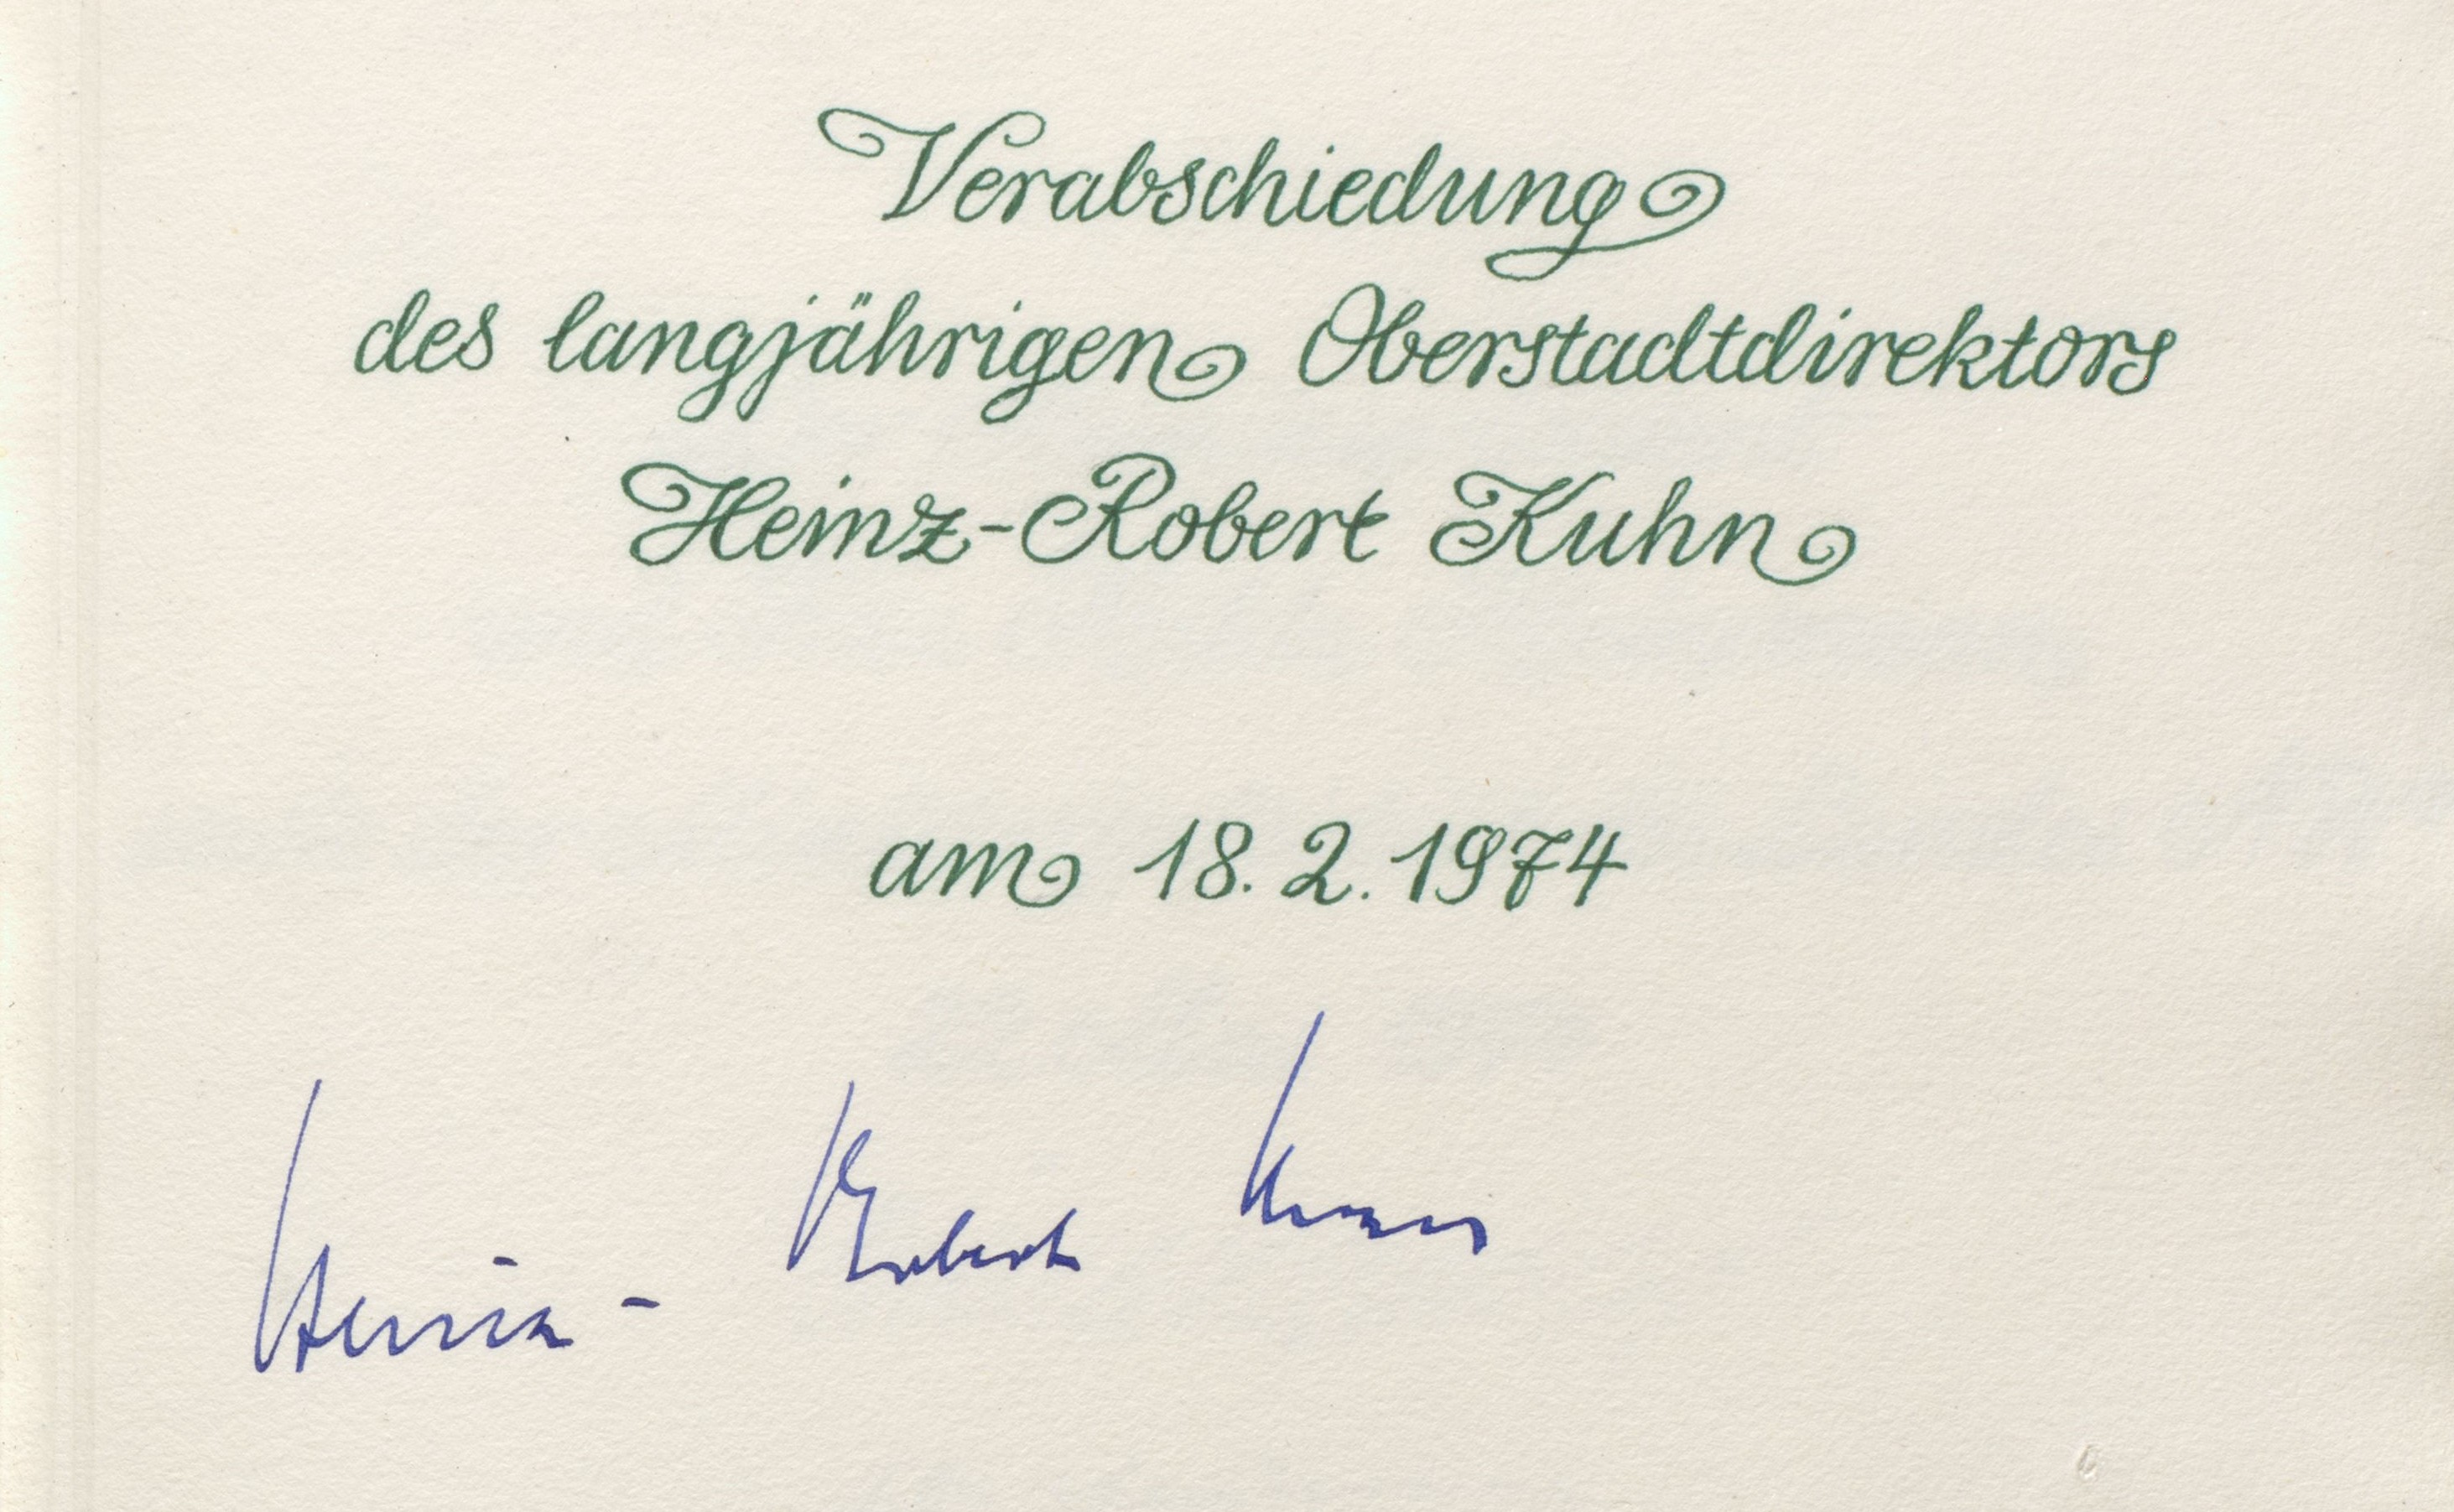 Verabschiedung
des langjährigen Oberstadtdirektors
Heinz-Robert Kuhn
am 18.2.1974
Heinz - Robert Kuhn